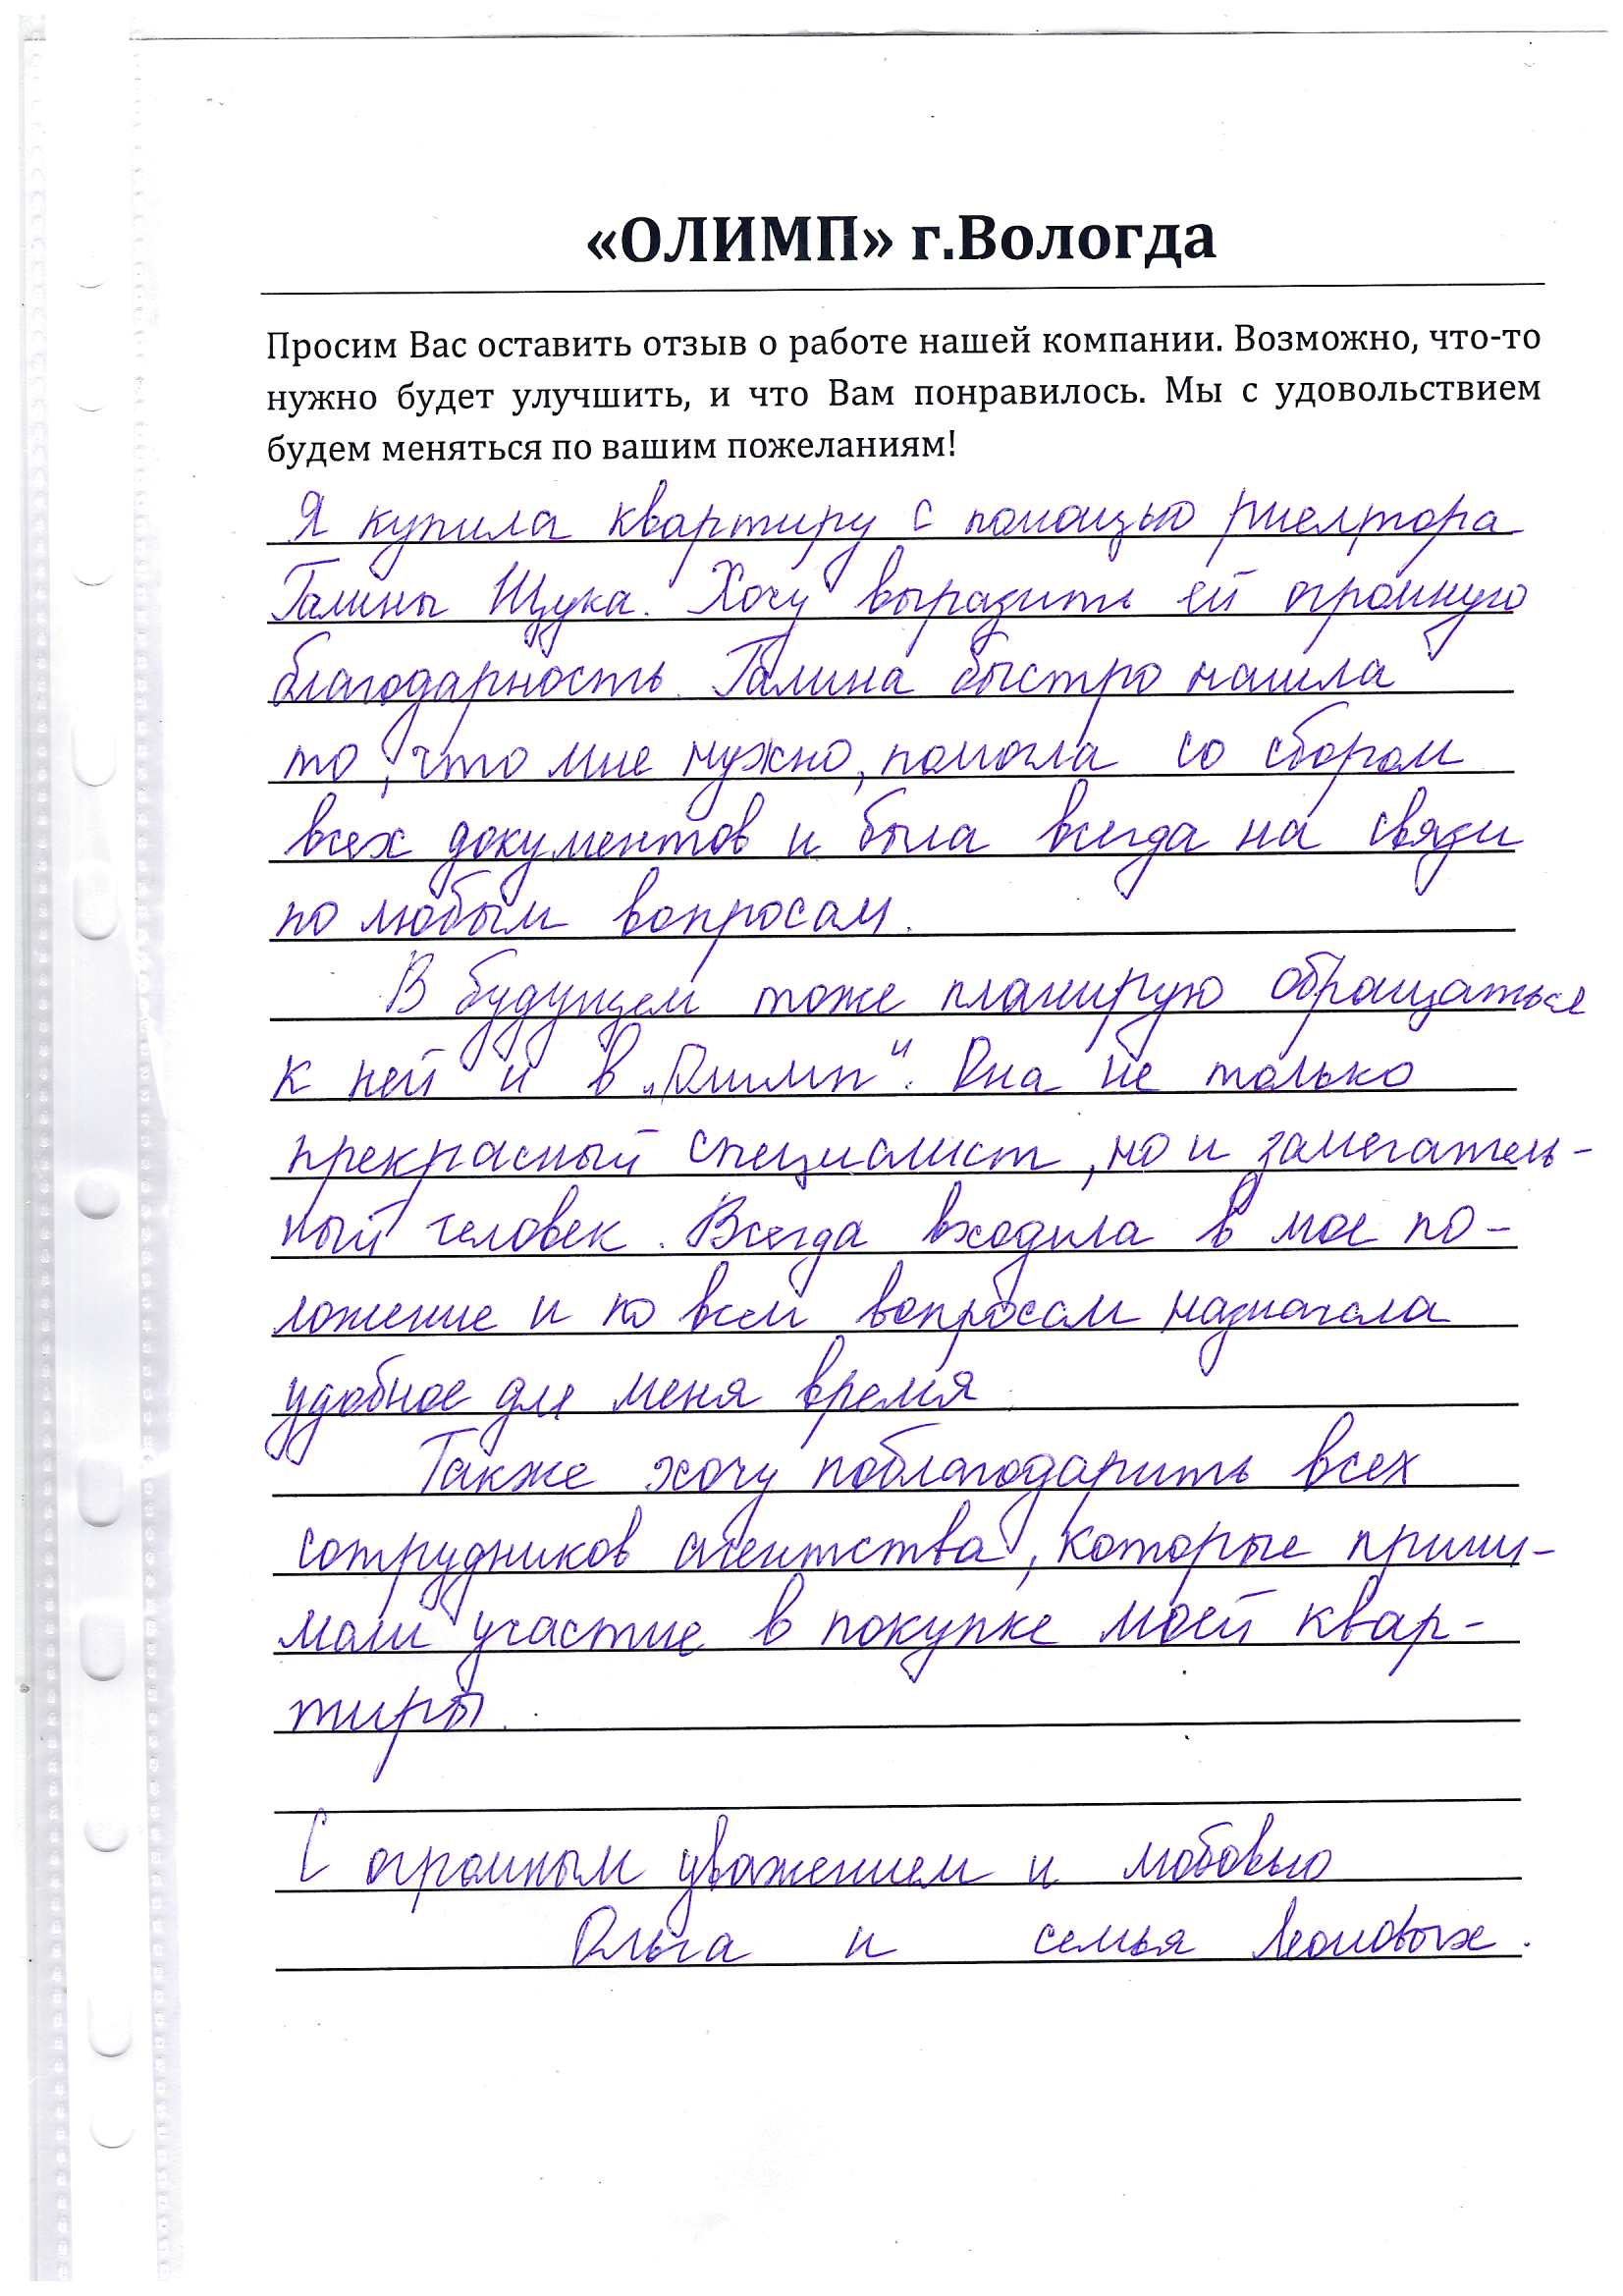 «ОЛИМП» г.Вологда
Просим Вас оставить отзыв о работе нашей компании. Возможно, что-то
нужно будет улучшить, и что Вам понравилось. Мы с удовольствием
будем меняться по вашим пожеланиям!
Я купила квартиру с помощью риелтора
Галины Щука. Хочу выразить ей огромную
благодарность. Галина быстро нашла
то, что мне нужно, помогла со сбором
всех документов и была всегда на связи
по любым вопросам.
В будущем тоже планирую обращаться
к ней и в „Олимп“. Она не только
прекрасный специалист, но и замечатель-
ный человек. Всегда входила в мое по-
ложение и по всем вопросам назначала
удобное для меня время.
Также хочу поблагодарить всех
сотрудников агентства, которые прини-
мали участие в покупке моей квар-
тиры.
С огромным уважением и любовью
Ольга и семья Леоновых.